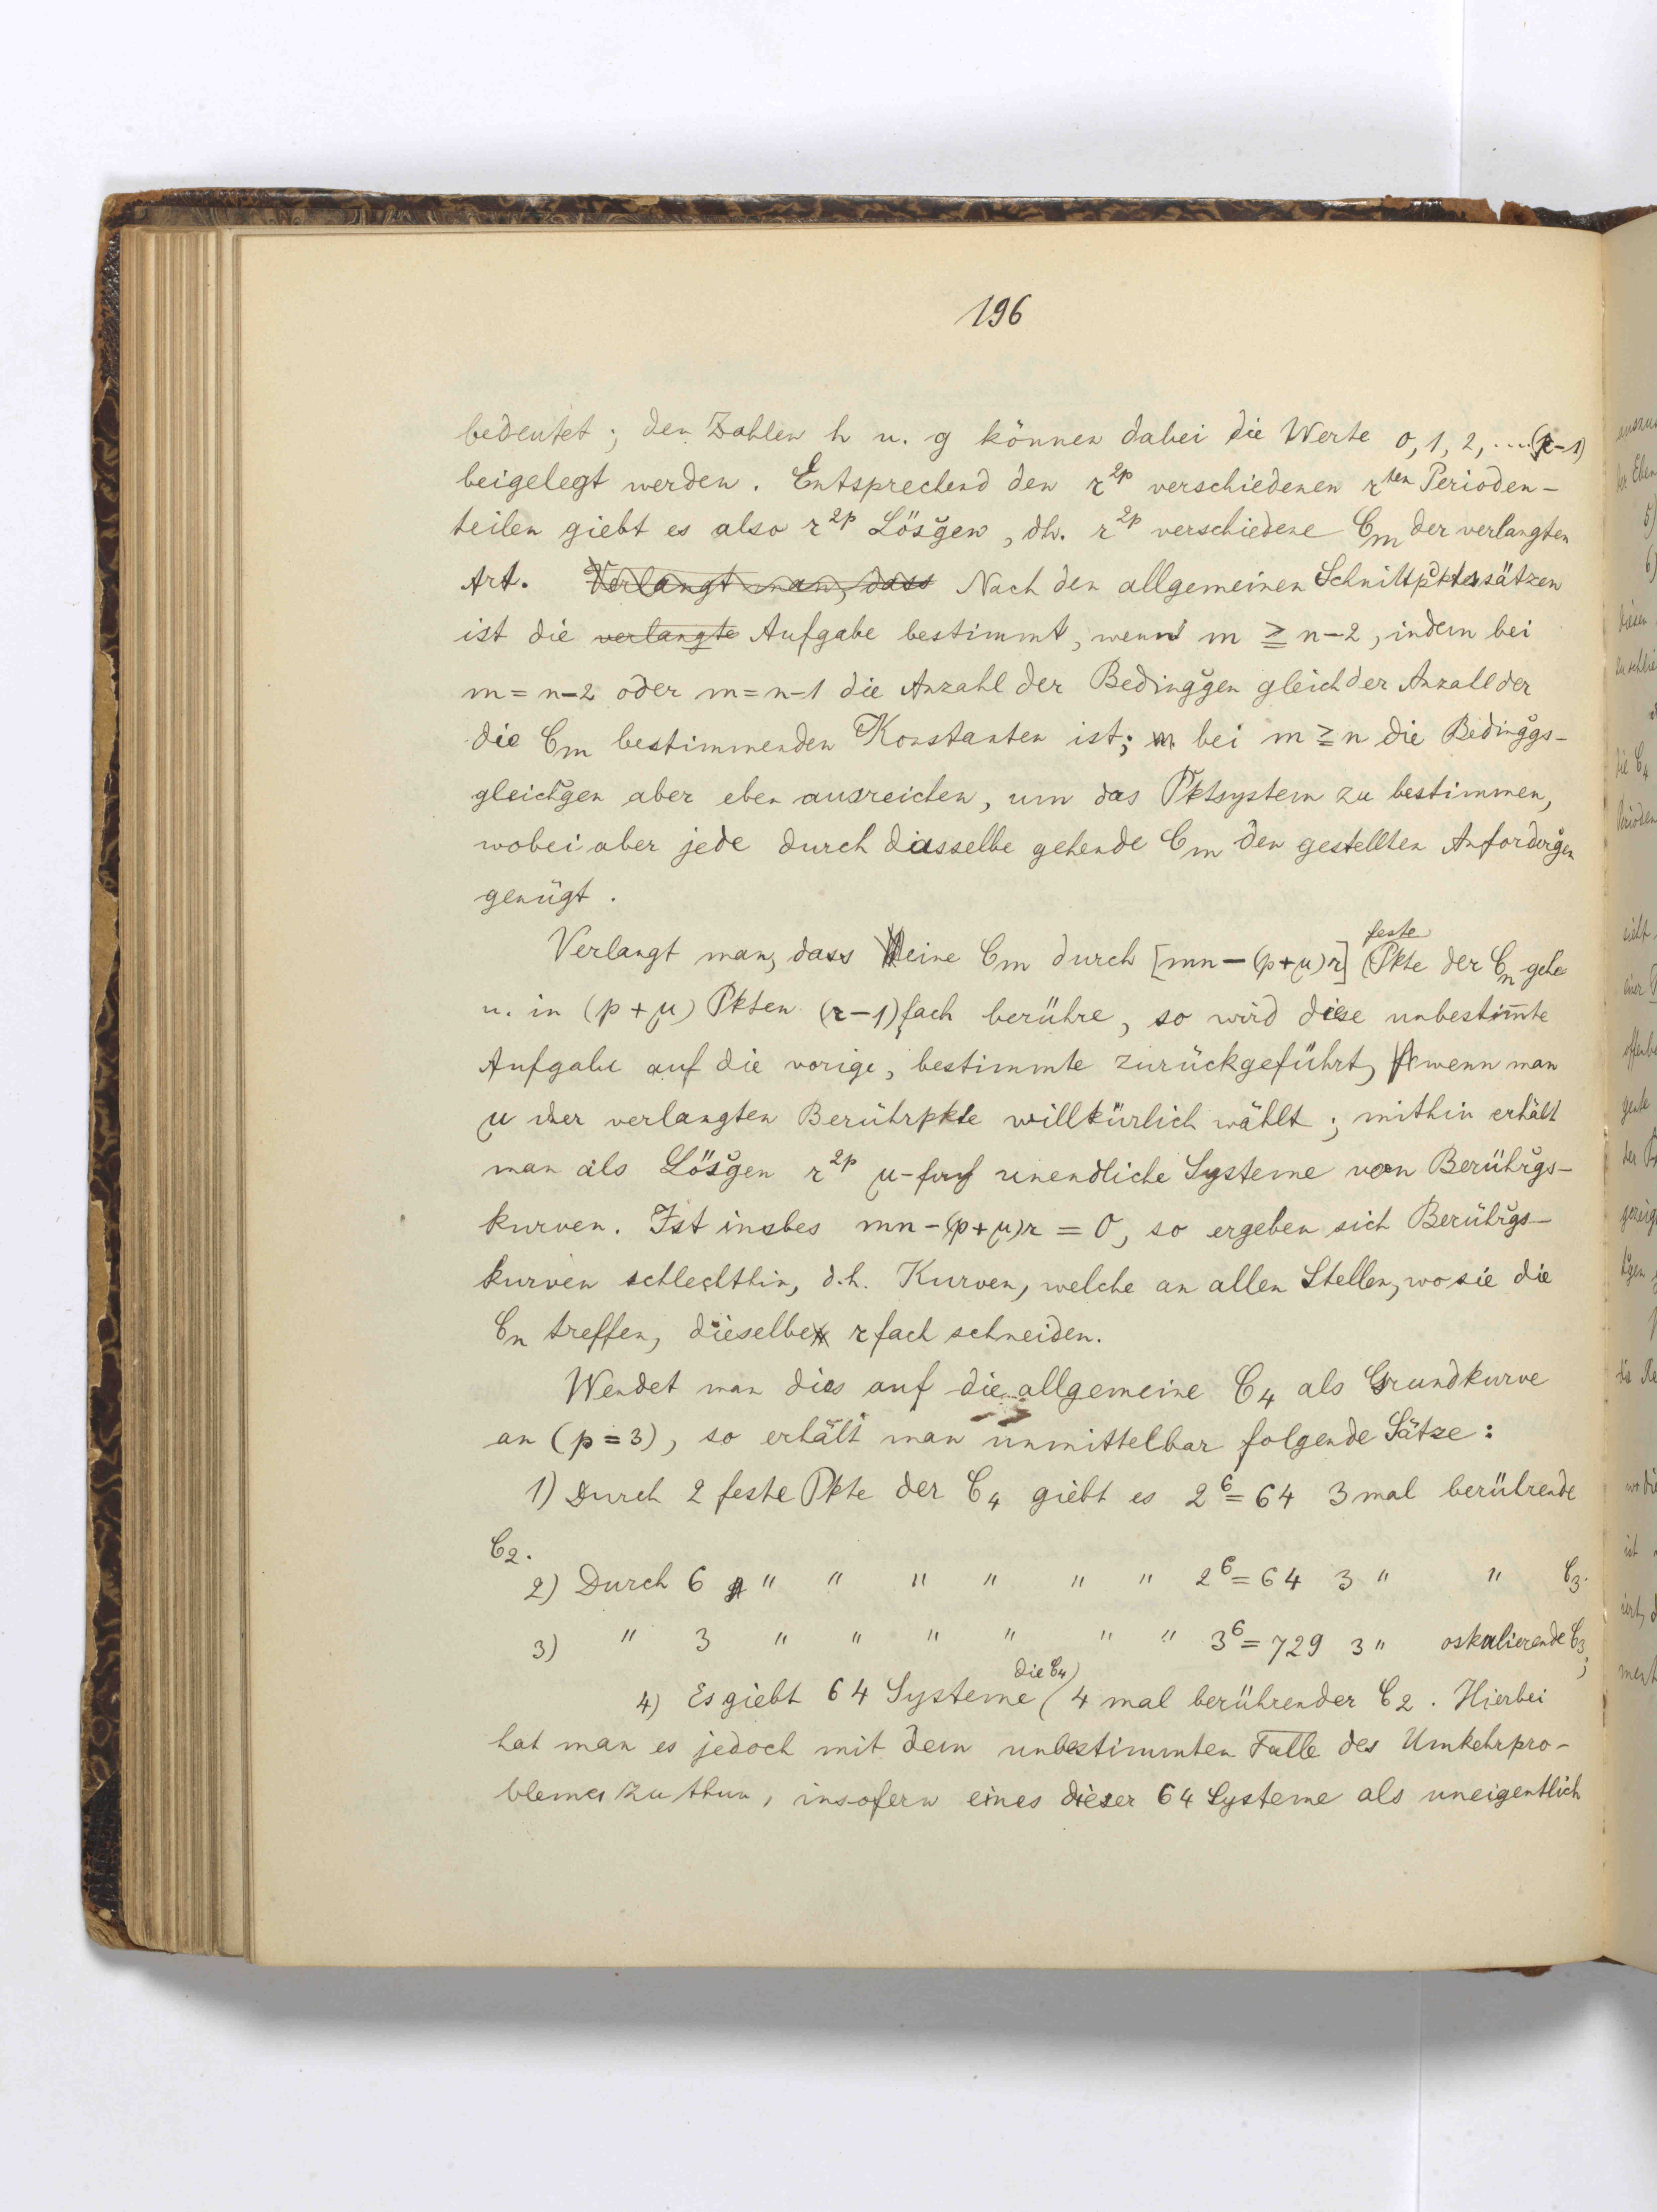 196
bedeutet; den Zahlen h u. g können dabei die Werte 0, 1, 2, .... (r-1)
beigelegt werden. Entsprechend den r^2p verschiedenen r^ten Perioden-
teilen giebt es also r^2p Lösğen, dh. r^2p verschiedene C_m der verlangten
Art. Verlangt man, dass Nach den allgemeinen Schnittpktssätzen
ist die verlangte Aufgabe bestimmt, wenn m ≥ n-2, indem bei
m = n-2 oder m = n-1 die Anzahl der Bedingğen gleich der Anzall der
die C_m bestimmenden Konstanten ist; bei m ≥ n die Bedingğs-
gleichğen aber eben ausreichen, um das Pktsystem zu bestimmen,
wobei aber jede durch dasselbe gehende C_m den gestellten Anforderğen
genügt.
Verlangt man, dass eine C_m durch [mn-(p+μ)r] feste Pkte der C_n gehe
u. in (p+μ) Pkten (r-1)fach berühre, so wird diese unbestim̅te
Aufgabe auf die vorige, bestimmte zurückgeführt, wenn man
μ der verlangten Berührpkte willkürlich wählt; mithin erhält
man als Lösğen r^2p μ-fach unendliche Systeme von Berührğs-
kurven. Ist insbes mn-(p+μ)r = 0, so ergeben sich Berührğs-
kurven schlechthin, d.h. Kurven, welche an allen Stellen, wo sie die
C_n treffen, dieselbe r fach schneiden.
Wendet man dies auf die allgemeine C_4 als Grundkurve
an (p=3), so erhält man unmittelbar folgende Sätze:
1) Durch 2 feste Pkte der C_4 giebt es 2^6 = 64 3 mal berührende
C_2.
2) Durch 6 " " " " " " 2^6 = 64 3 " " C_3.
3) " 3 " " " " " " 3^6 = 729 3 " oskulierende C_3;
4) Es giebt 64 Systeme die C_4 4 mal berührender C_2. Hierbei
hat man es jedoch mit dem unbestimmten Falle des Umkehrpro-
blemes zu thun, insofern eines dieser 64 Systeme als uneigentlich